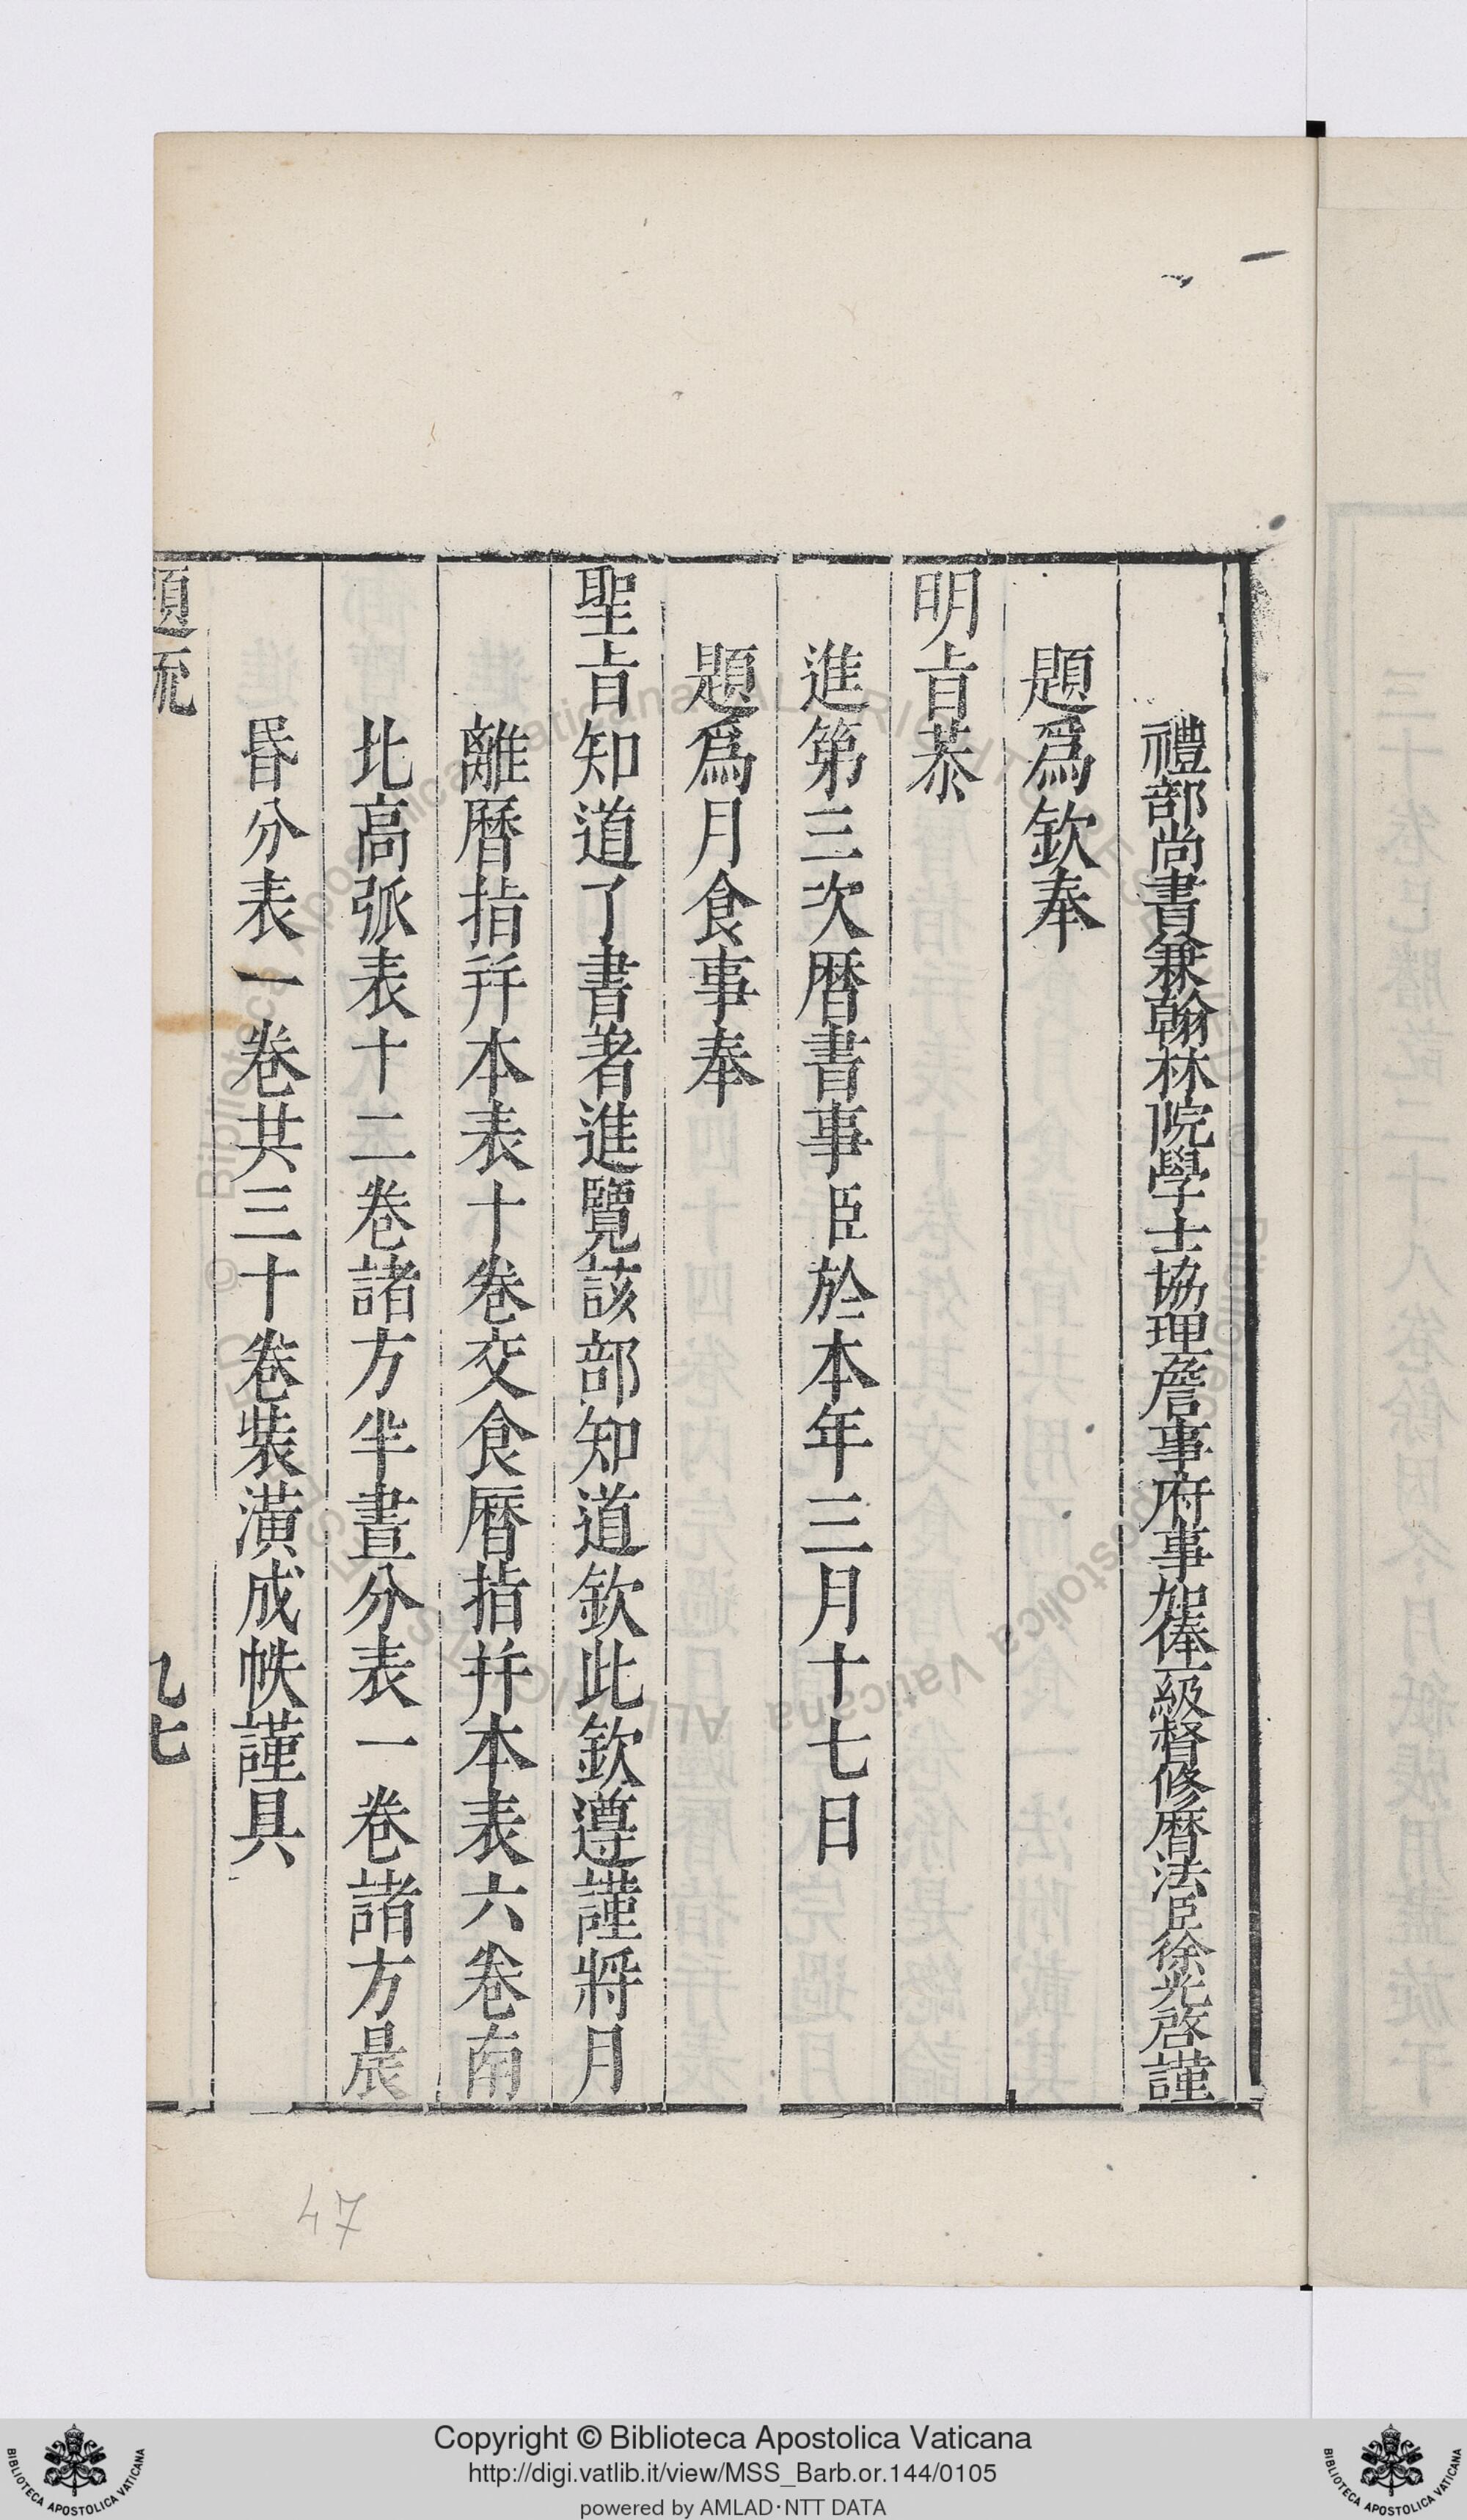 禮部尚書兼翰林院學士協理詹事府事加俸一級督修曆法臣徐光啓謹
題爲欽奉
明旨恭
進第三次暦書事臣於本年三月十七日
題爲月食事奉
聖旨知道了書着進覽該部知道欽此欽遵謹將月
離曆指并本表十卷交食曆指并本表六卷南
北高弧表十二卷諸方半晝分表一卷諸方晨
昬分表一卷共三十卷裝潢成帙謹具
題疏
九七
47
Copyright © Biblioteca Apostolica Vaticana
http://digi.vatlib.it/view/MSS_Barb.or.144/0105
powered by AMLAD·NTT DATA
BIBLIOTECA APOSTOLICA VATICANA
BIBLIOTECA APOSTOLICA VATICANA